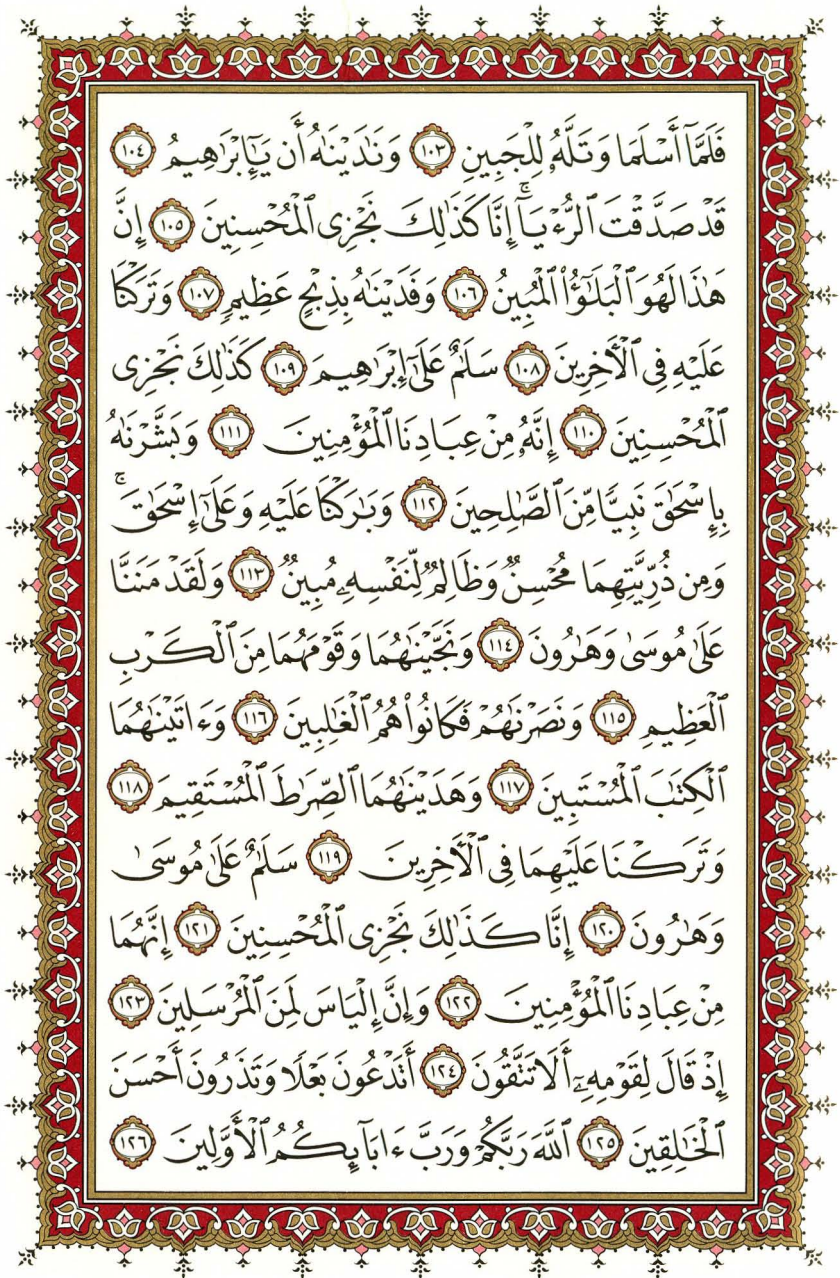 فَلَمَّآ أَسْلَمَا وَتَلَّهُۥ لِلْجَبِينِ ١٠٣ وَنَٰدَيْنَٰهُ أَن يَٰٓإِبْرَٰهِيمُ ١٠٤
قَدْ صَدَّقْتَ ٱلرُّءْيَآ ۚ إِنَّا كَذَٰلِكَ نَجْزِى ٱلْمُحْسِنِينَ ١٠٥ إِنَّ
هَٰذَا لَهُوَ ٱلْبَلَٰٓؤُا۟ ٱلْمُبِينُ ١٠٦ وَفَدَيْنَٰهُ بِذِبْحٍ عَظِيمٍ ١٠٧ وَتَرَكْنَا
عَلَيْهِ فِى ٱلْءَاخِرِينَ ١٠٨ سَلَٰمٌ عَلَىٰٓ إِبْرَٰهِيمَ ١٠٩ كَذَٰلِكَ نَجْزِى
ٱلْمُحْسِنِينَ ١١٠ إِنَّهُۥ مِنْ عِبَادِنَا ٱلْمُؤْمِنِينَ ١١١ وَبَشَّرْنَٰهُ
بِإِسْحَٰقَ نَبِيًّا مِّنَ ٱلصَّٰلِحِينَ ١١٢ وَبَٰرَكْنَا عَلَيْهِ وَعَلَىٰٓ إِسْحَٰقَ ۚ
وَمِن ذُرِّيَّتِهِمَا مُحْسِنٌ وَظَالِمٌ لِّنَفْسِهِۦ مُبِينٌ ١١٣ وَلَقَدْ مَنَنَّا
عَلَىٰ مُوسَىٰ وَهَٰرُونَ ١١٤ وَنَجَّيْنَٰهُمَا وَقَوْمَهُمَا مِنَ ٱلْكَرْبِ
ٱلْعَظِيمِ ١١٥ وَنَصَرْنَٰهُمْ فَكَانُوا۟ هُمُ ٱلْغَٰلِبِينَ ١١٦ وَءَاتَيْنَٰهُمَا
ٱلْكِتَٰبَ ٱلْمُسْتَبِينَ ١١٧ وَهَدَيْنَٰهُمَا ٱلصِّرَٰطَ ٱلْمُسْتَقِيمَ ١١٨
وَتَرَكْنَا عَلَيْهِمَا فِى ٱلْءَاخِرِينَ ١١٩ سَلَٰمٌ عَلَىٰ مُوسَىٰ
وَهَٰرُونَ ١٢٠ إِنَّا كَذَٰلِكَ نَجْزِى ٱلْمُحْسِنِينَ ١٢١ إِنَّهُمَا
مِنْ عِبَادِنَا ٱلْمُؤْمِنِينَ ١٢٢ وَإِنَّ إِلْيَاسَ لَمِنَ ٱلْمُرْسَلِينَ ١٢٣
إِذْ قَالَ لِقَوْمِهِۦٓ أَلَا تَتَّقُونَ ١٢٤ أَتَدْعُونَ بَعْلًا وَتَذَرُونَ أَحْسَنَ
ٱلْخَٰلِقِينَ ١٢٥ ٱللَّهَ رَبَّكُمْ وَرَبَّ ءَابَآئِكُمُ ٱلْأَوَّلِينَ ١٢٦